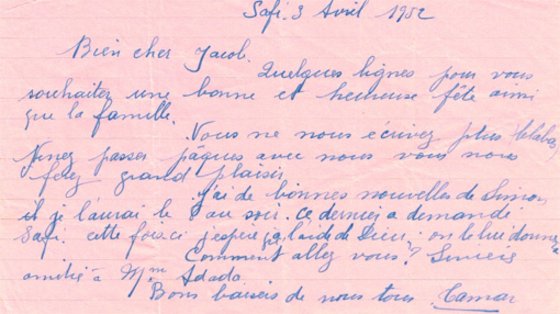 Safi. 3 Avril 1952
Bien cher Jacob.
Quelques lignes pour vous
souhaiter une bonne et heureuse fête ainsi
que la famille.
Vous ne nous écrivez plus
Venez passer pâques avec nous vous nous
ferez grand plaisir.
J'ai de bonnes nouvelles de Simon
et je l'aurai le 8 au soir. Ce dernier a demandé
Safi. cette fois ci j'espère l'aide de Dieu. on le lui donnera
Comment allez vous? Sincère
amitié à Mme Adada
Bons baisers de nous tous. Tamar